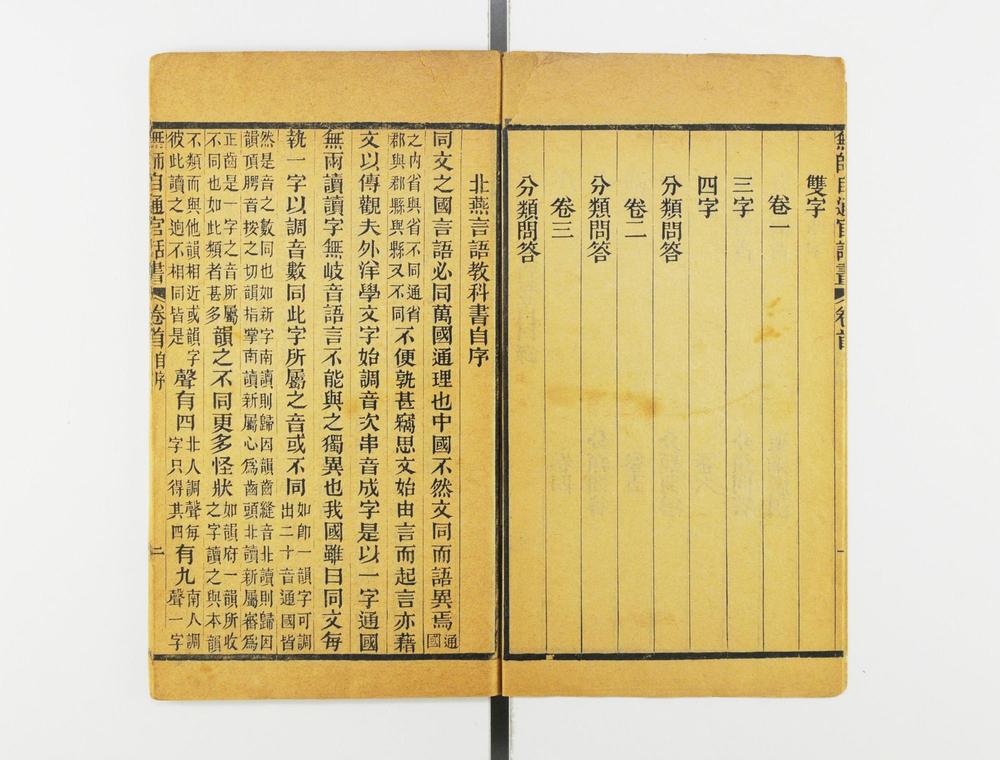 無師自通官話書 卷首 一
雙字
卷一
三字
四字
分類問答
卷二
分類問答
卷三
分類問答
北燕言語教科書自序
同文之國言語必同萬國通理也中國不然文同而語異焉通國
之内省與省不同通省郡與郡縣與縣又不同不便孰甚竊思文始由言而起言亦藉
文以傳觀夫外洋學文字始調音次串音成字是以一字通國
無兩讀讀字無岐音語言不能與之獨異也我國雖曰同文每
執一字以調音數同此字所屬之音或不同如卽一韻字可調出二十音通國皆
然是音之數同也如新字南讀則歸因韻齒縫音北讀則歸因韻頂腭音按之切韻指掌南讀新屬心爲齒頭北讀新屬審爲
正齒是一字之音所屬不同也如此類者甚多韻之不同更多怪狀如韻府一韻所收之字讀之與本韻
不類而與他韻相近或韻字彼此讀之逈不相同皆是聲有四北人調聲每字只得其四有九南人調聲一字
無師自通官話書 卷首 自序 二